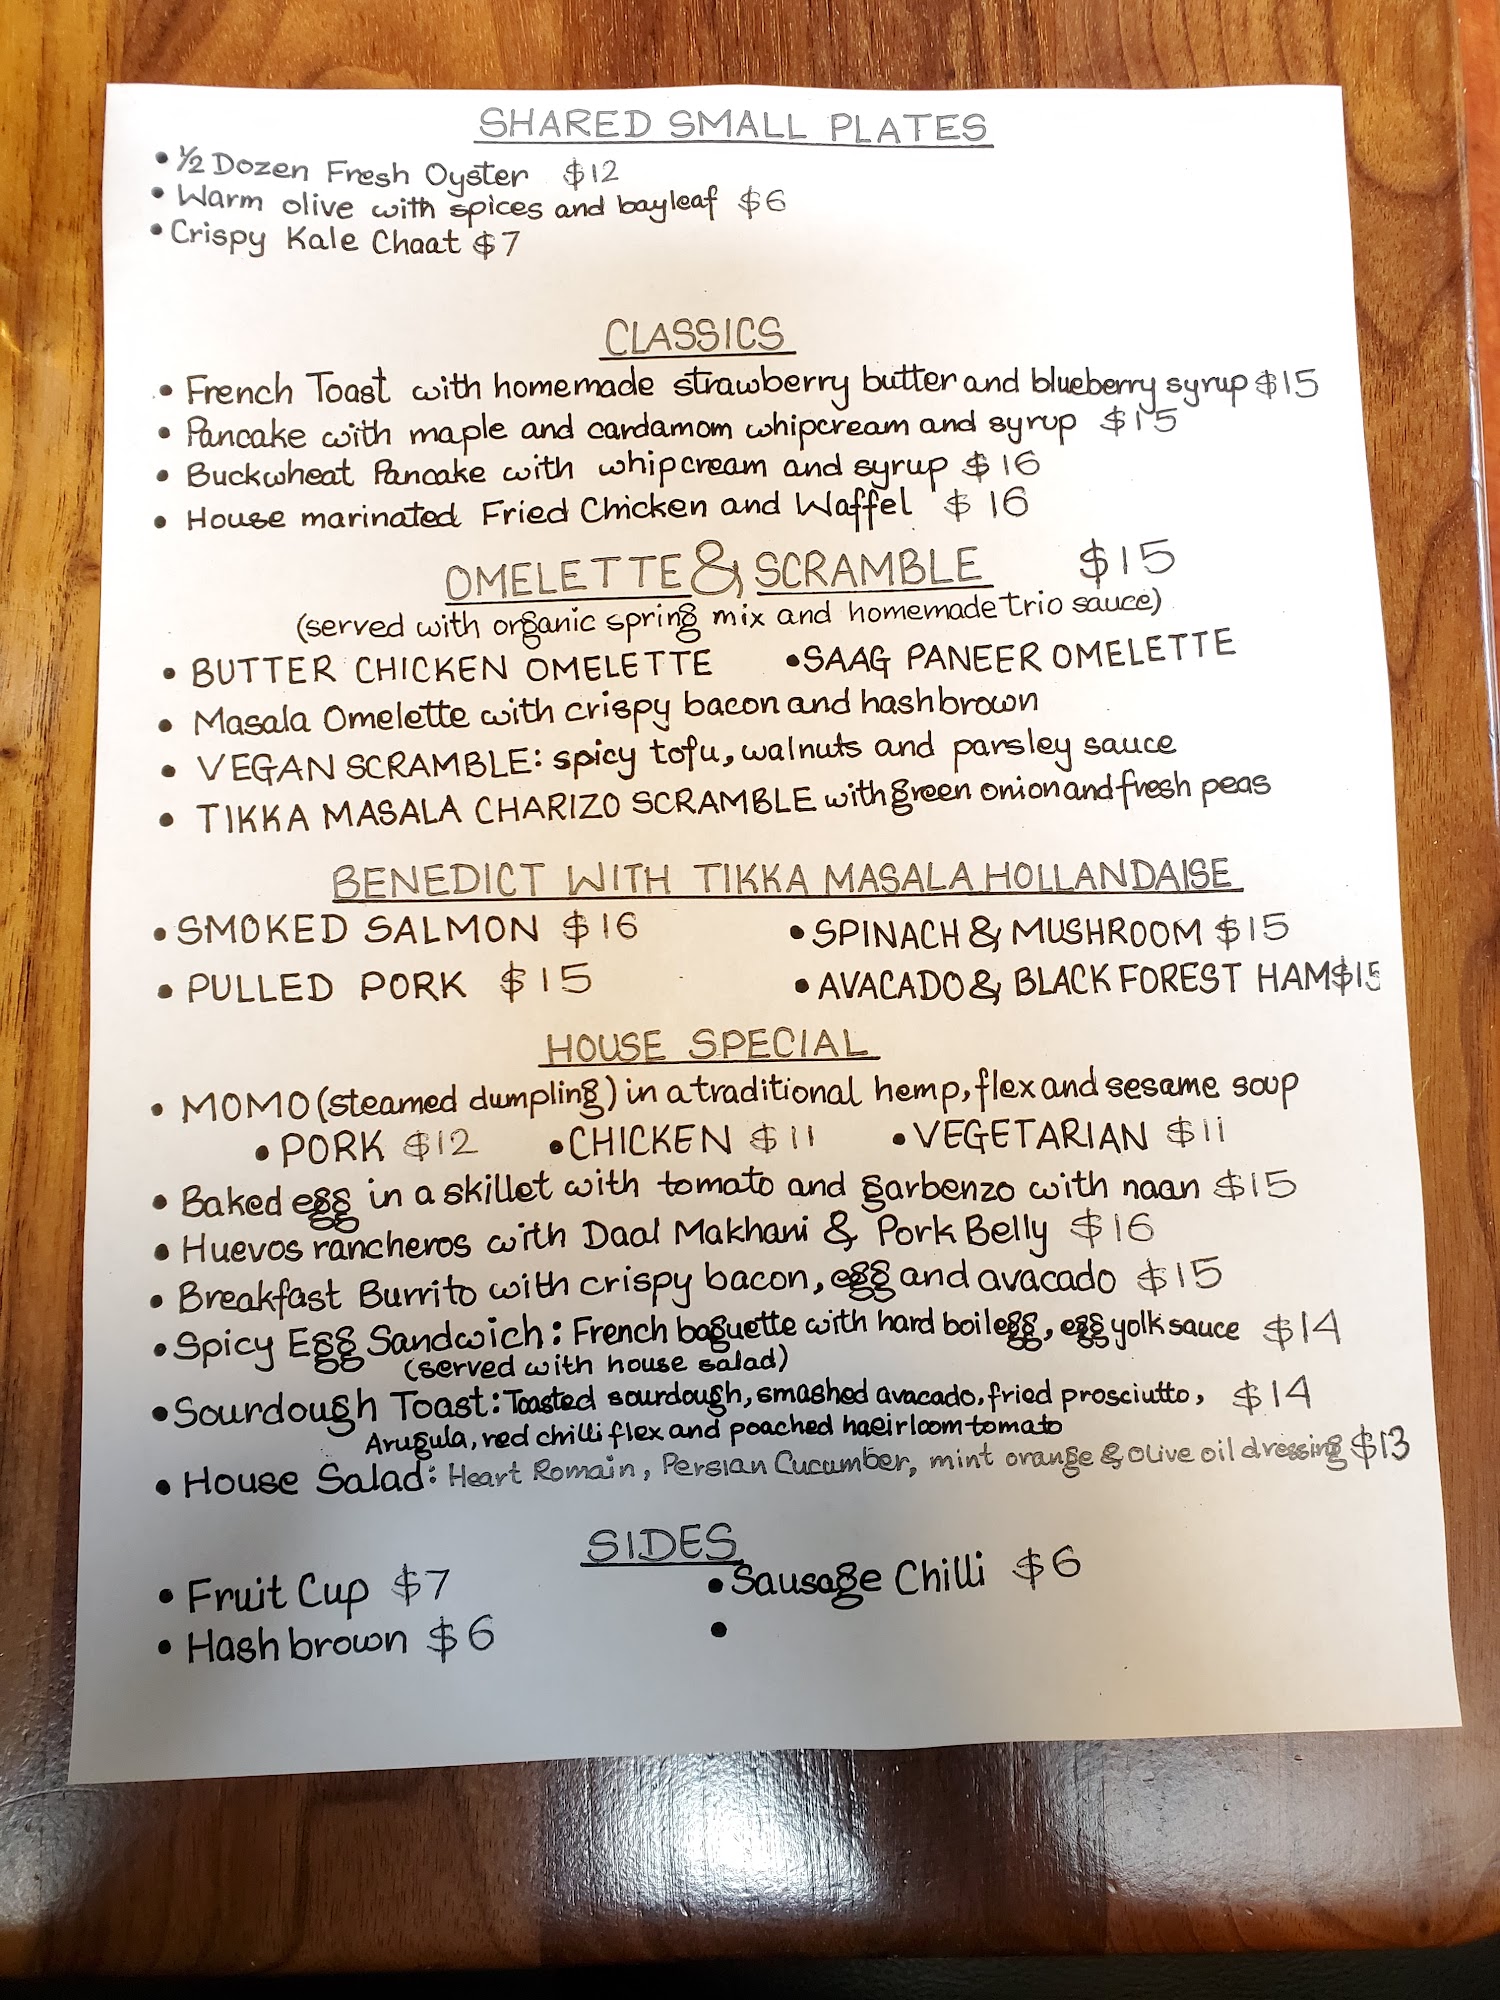 SHARED SMALL PLATES
• ½ Dozen Fresh Oyster $12
• Warm olive with spices and bayleaf $6
• Crispy Kale Chaat $7
CLASSICS
• French Toast with homemade strawberry butter and blueberry syrup $15
• Pancake with maple and cardamom whipcream and syrup $15
• Buckwheat Pancake with whipcream and syrup $16
• House marinated Fried Chicken and Waffel $16
OMELETTE & SCRAMBLE $15
(served with organic spring mix and homemade trio sauce)
• BUTTER CHICKEN OMELETTE • SAAG PANEER OMELETTE
• Masala Omelette with crispy bacon and hashbrown
• VEGAN SCRAMBLE: spicy tofu, walnuts and parsley sauce
• TIKKA MASALA CHARIZO SCRAMBLE with green onion and fresh peas
BENEDICT WITH TIKKA MASALA HOLLANDAISE
• SMOKED SALMON $16 • SPINACH & MUSHROOM $15
• PULLED PORK $15 • AVACADO & BLACK FOREST HAM $15
HOUSE SPECIAL
• MOMO (steamed dumpling) in a traditional hemp, flex and sesame soup
• PORK $12 • CHICKEN $11 • VEGETARIAN $11
• Baked egg in a skillet with tomato and garbenzo with naan $15
• Huevos rancheros with Daal Makhani & Pork Belly $16
• Breakfast Burrito with crispy bacon, egg and avacado $15
• Spicy Egg Sandwich: French baguette with hard boil egg, egg yolk sauce $14
(served with house salad)
• Sourdough Toast: Toasted sourdough, smashed avacado, fried prosciutto, $14
Arugula, red chilli flex and poached haeirloom tomato
• House Salad: Heart Romain, Persian Cucumber, mint orange & olive oil dressing $13
SIDES
• Fruit Cup $7 • Sausage Chilli $6
• Hash brown $6 •